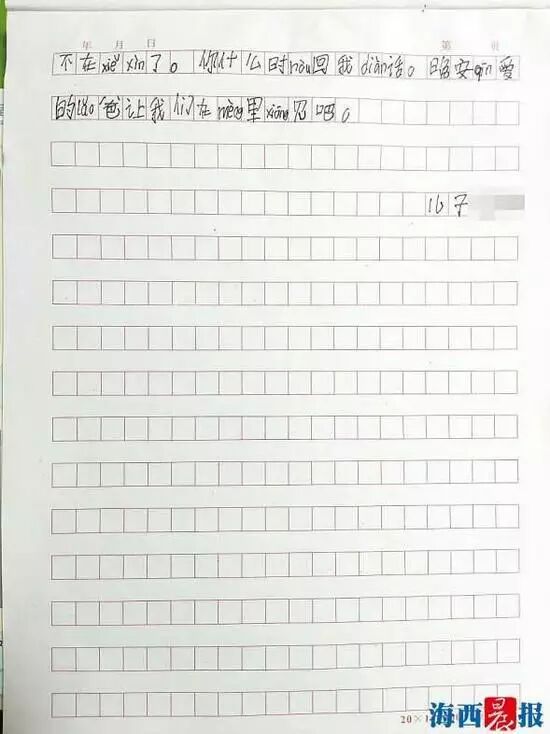 年 月 日 第 页
不在xiě xìn了。你什么时hòu回我diàn话。晚安qīn爱
的lǎo爸让我们在mèng里xiāng见吧。
儿子
海西晨报